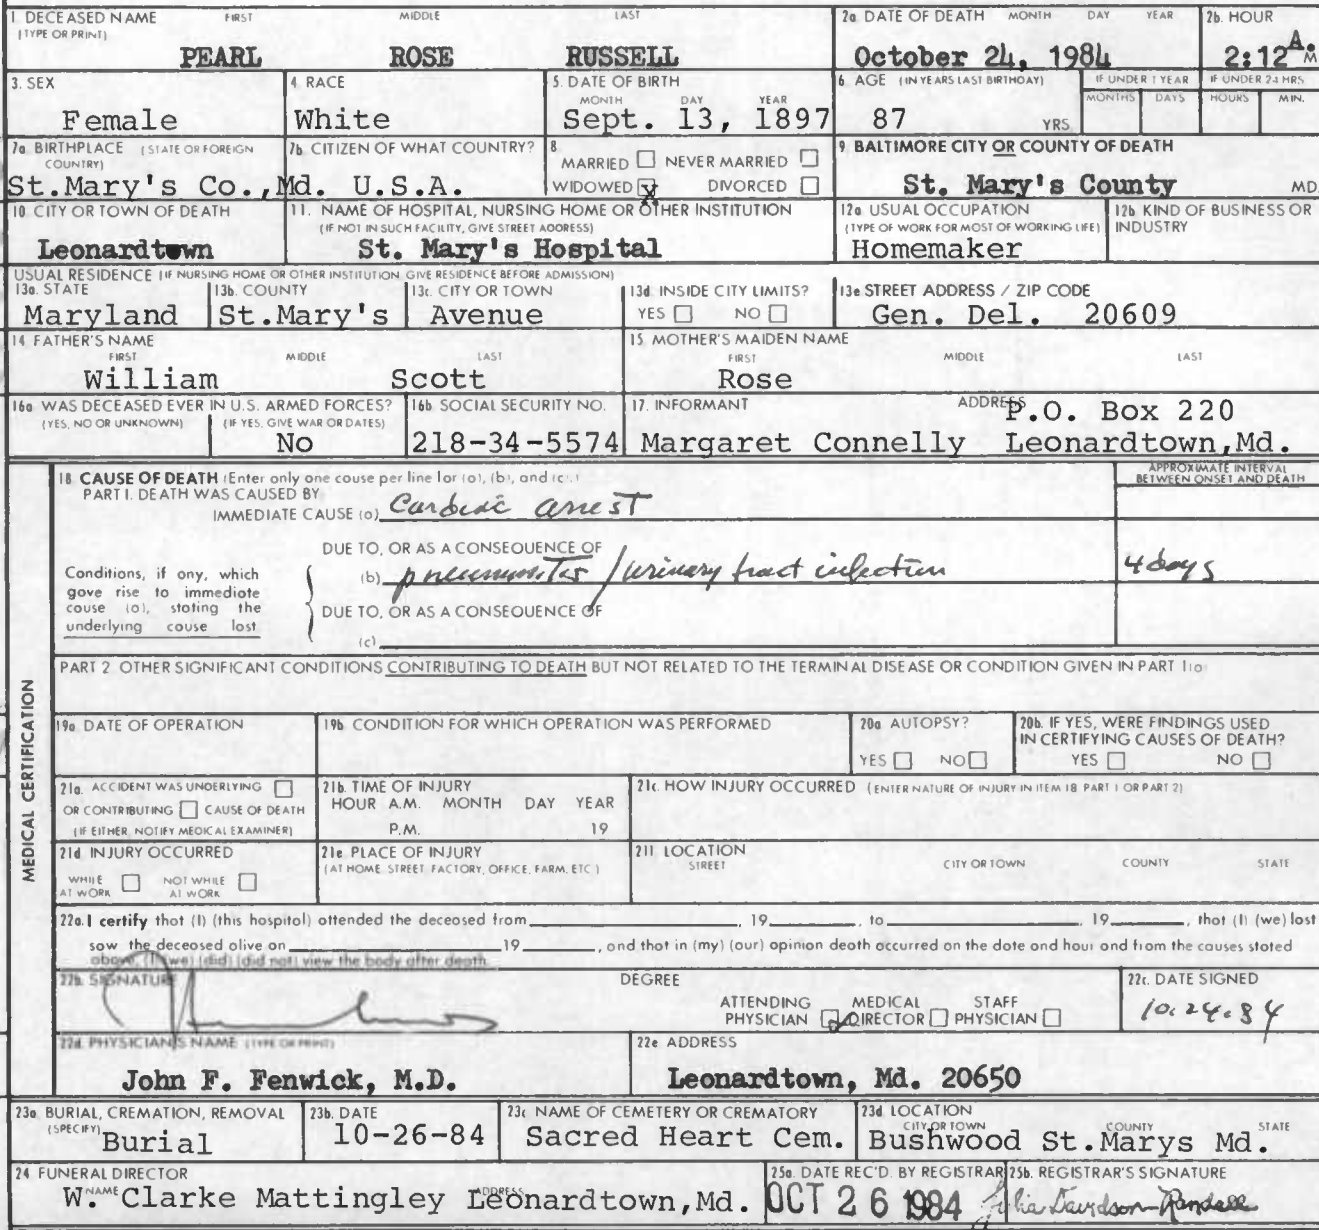 1. DECEASED NAME FIRST MIDDLE LAST
(TYPE OR PRINT)
PEARL ROSE RUSSELL
2a. DATE OF DEATH MONTH DAY YEAR
October 24, 1984
2b. HOUR
2:12 A. M
3. SEX
Female
4. RACE
White
5. DATE OF BIRTH
MONTH DAY YEAR
Sept. 13, 1897
6. AGE (IN YEARS LAST BIRTHDAY)
87 YRS
IF UNDER 1 YEAR
MONTHS DAYS
IF UNDER 24 HRS
HOURS MIN.
7a. BIRTHPLACE (STATE OR FOREIGN
COUNTRY)
St.Mary's Co.,Md.
7b. CITIZEN OF WHAT COUNTRY?
U.S.A.
8
MARRIED NEVER MARRIED
WIDOWED X DIVORCED
9. BALTIMORE CITY OR COUNTY OF DEATH
St. Mary's County MD.
10. CITY OR TOWN OF DEATH
Leonardtown
11. NAME OF HOSPITAL, NURSING HOME OR OTHER INSTITUTION
(IF NOT IN SUCH FACILITY, GIVE STREET ADDRESS)
St. Mary's Hospital
12a. USUAL OCCUPATION
(TYPE OF WORK FOR MOST OF WORKING LIFE)
Homemaker
12b. KIND OF BUSINESS OR
INDUSTRY
USUAL RESIDENCE (IF NURSING HOME OR OTHER INSTITUTION GIVE RESIDENCE BEFORE ADMISSION)
13a. STATE
Maryland
13b. COUNTY
St.Mary's
13c. CITY OR TOWN
Avenue
13d. INSIDE CITY LIMITS?
YES NO
13e. STREET ADDRESS / ZIP CODE
Gen. Del. 20609
14. FATHER'S NAME
FIRST MIDDLE LAST
William Scott
15. MOTHER'S MAIDEN NAME
FIRST MIDDLE LAST
Rose
16a. WAS DECEASED EVER IN U.S. ARMED FORCES?
(YES, NO OR UNKNOWN) (IF YES, GIVE WAR OR DATES)
No
16b. SOCIAL SECURITY NO.
218-34-5574
17. INFORMANT ADDRESS
P.O. Box 220
Margaret Connelly Leonardtown,Md.
MEDICAL CERTIFICATION
18. CAUSE OF DEATH (Enter only one cause per line for (a), (b), and (c).)
APPROXIMATE INTERVAL
BETWEEN ONSET AND DEATH
PART I. DEATH WAS CAUSED BY
IMMEDIATE CAUSE (a) Cardiac arrest
DUE TO, OR AS A CONSEQUENCE OF
(b) pneumonitis / urinary tract infection 4 days
Conditions, if any, which
gave rise to immediate
cause (a), stating the
underlying cause last
DUE TO, OR AS A CONSEQUENCE OF
(c)
PART 2 OTHER SIGNIFICANT CONDITIONS CONTRIBUTING TO DEATH BUT NOT RELATED TO THE TERMINAL DISEASE OR CONDITION GIVEN IN PART 1(a)
19a. DATE OF OPERATION
19b. CONDITION FOR WHICH OPERATION WAS PERFORMED
20a. AUTOPSY?
YES NO
20b. IF YES, WERE FINDINGS USED
IN CERTIFYING CAUSES OF DEATH?
YES NO
21a. ACCIDENT WAS UNDERLYING
OR CONTRIBUTING CAUSE OF DEATH
(IF EITHER, NOTIFY MEDICAL EXAMINER)
21b. TIME OF INJURY
HOUR A.M. MONTH DAY YEAR
P.M. 19
21c. HOW INJURY OCCURRED (ENTER NATURE OF INJURY IN ITEM 18 PART 1 OR PART 2)
21d. INJURY OCCURRED
WHILE AT WORK NOT WHILE AT WORK
21e. PLACE OF INJURY
(AT HOME, STREET, FACTORY, OFFICE, FARM, ETC.)
21f. LOCATION
STREET CITY OR TOWN COUNTY STATE
22a. I certify that (I) (this hospital) attended the deceased from 19 to 19 , that (I) (we) last
saw the deceased alive on 19 , and that in (my) (our) opinion death occurred on the date and hour and from the causes stated
above, (I) (we) (did) (did not) view the body after death.
22b. SIGNATURE
DEGREE
ATTENDING PHYSICIAN MEDICAL DIRECTOR STAFF PHYSICIAN
22c. DATE SIGNED
10.24.84
22d. PHYSICIAN'S NAME (TYPE OR PRINT)
John F. Fenwick, M.D.
22e. ADDRESS
Leonardtown, Md. 20650
23a. BURIAL, CREMATION, REMOVAL
(SPECIFY)
Burial
23b. DATE
10-26-84
23c. NAME OF CEMETERY OR CREMATORY
Sacred Heart Cem.
23d. LOCATION
CITY OR TOWN COUNTY STATE
Bushwood St.Marys Md.
24. FUNERAL DIRECTOR
NAME ADDRESS
W. Clarke Mattingley Leonardtown,Md.
25a. DATE REC'D. BY REGISTRAR
OCT 26 1984
25b. REGISTRAR'S SIGNATURE
Julia Davidson-Randall